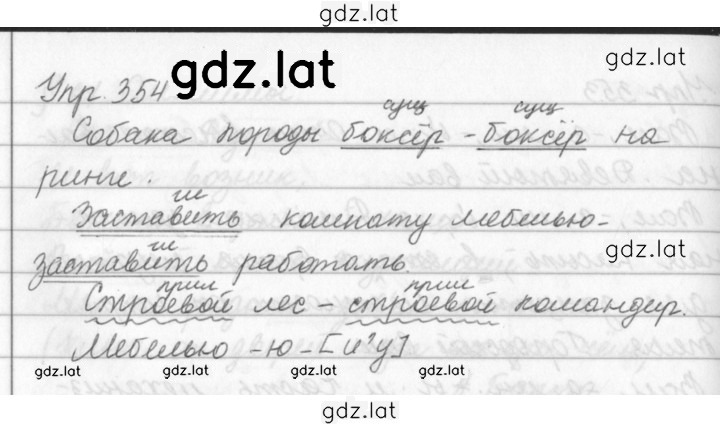 gdz.lat
gdz.lat
gdz.lat
Упр. 354
сущ сущ
Собака породы боксёр - боксёр на
ринге.
гл
Заставить комнату мебелью-
гл
заставить работать.
прил прил
Строевой лес - строевой командир.
Мебелью -ю- [и²у]
gdz.lat gdz.lat gdz.lat gdz.lat
gdz.lat